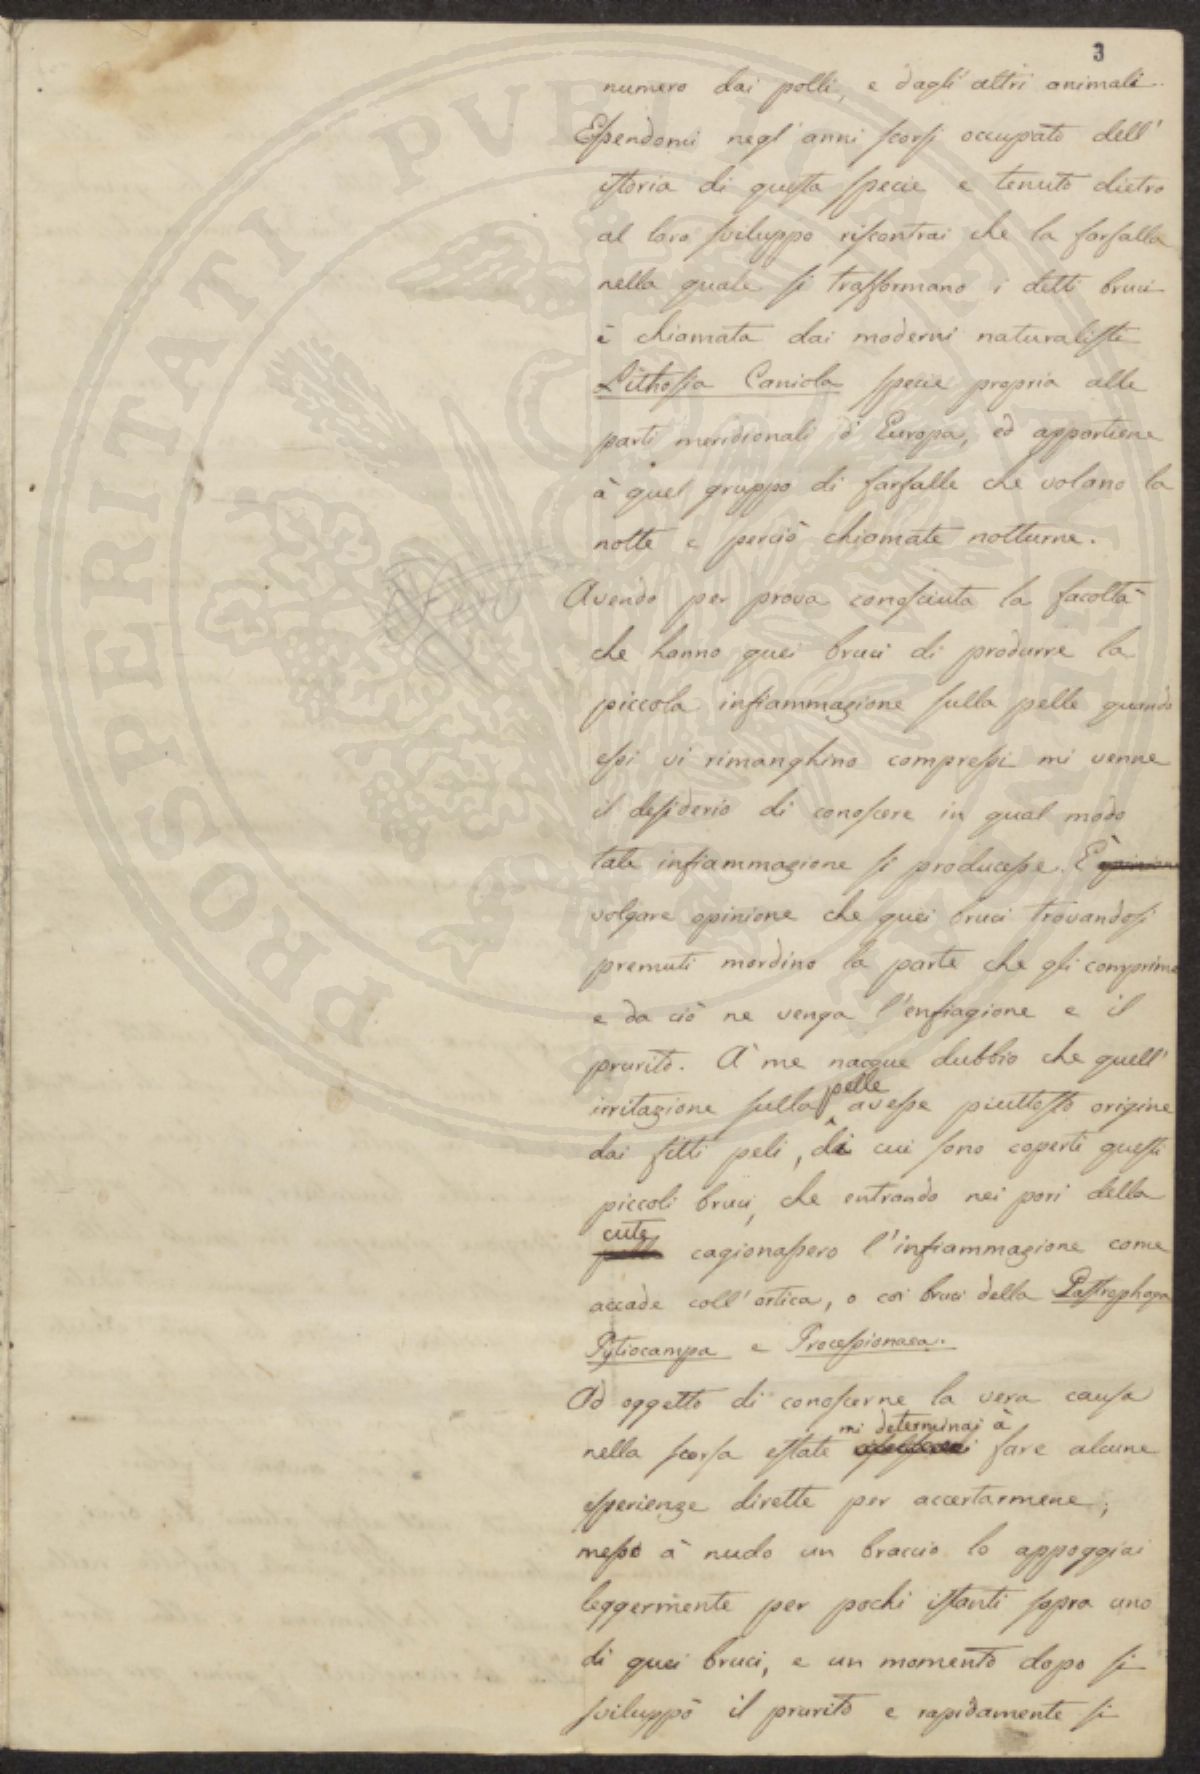 3
numero dai polli, e dagl'altri animali.
Essendomi negl'anni scorsi occupato dell'
istoria di questa specie e tenuto dietro
al loro sviluppo riscontrai che la farfalla
nella quale si trasformano i detti bruci
è chiamata dai moderni naturaliste
Lithosia Caniola specie propria alle
parti meridionali d'Europa, ed appartiene
à quel gruppo di farfalle che volano la
notte e perciò chiamate notturne.
Avendo per prova conosciuta la facoltà
che hanno quei bruci di produrre la
piccola infiammazione sulla pelle quando
essi vi rimanghino compressi mi venne
il desiderio di conoscere in qual modo
tale infiammazione si producesse. È opinione
volgare opinione che quei bruci trovandosi
premuti mordino la parte che gli comprime
e da ciò ne venga l'enfiagione e il
prurito. A me nacque dubbio che quell'
irritazione sulla pelle avesse piuttosto origine
dai fitti peli, di cui sono coperti questi
piccoli bruci, che entrando nei pori della
cute cagionassero l'infiammazione come
accade coll'ortica, o coi bruci della Gastrophopa
Pytiocampa e Processionaea.
Ad oggetto di conoscerne la vera causa
nella scorsa estate mi determinai à fare alcune
esperienze dirette per accertarmene;
messo à nudo un braccio lo appoggiai
leggermente per pochi istanti sopra uno
di quei bruci, e un momento dopo si
sviluppò il prurito e rapidamente si
PROSPERITATI PVBLICAE